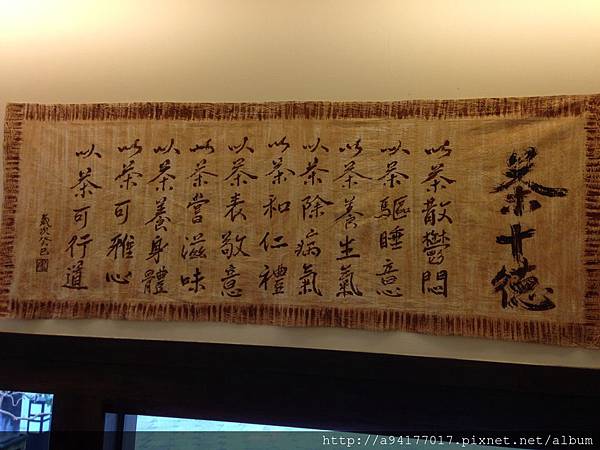 茶十德
以茶散鬱悶
以茶驅睡意
以茶養生氣
以茶除病氣
以茶和仁禮
以茶表敬意
以茶嘗滋味
以茶養身體
以茶可雅心
以茶可行道
歲次癸巳
http://a94177017.pixnet.net/album